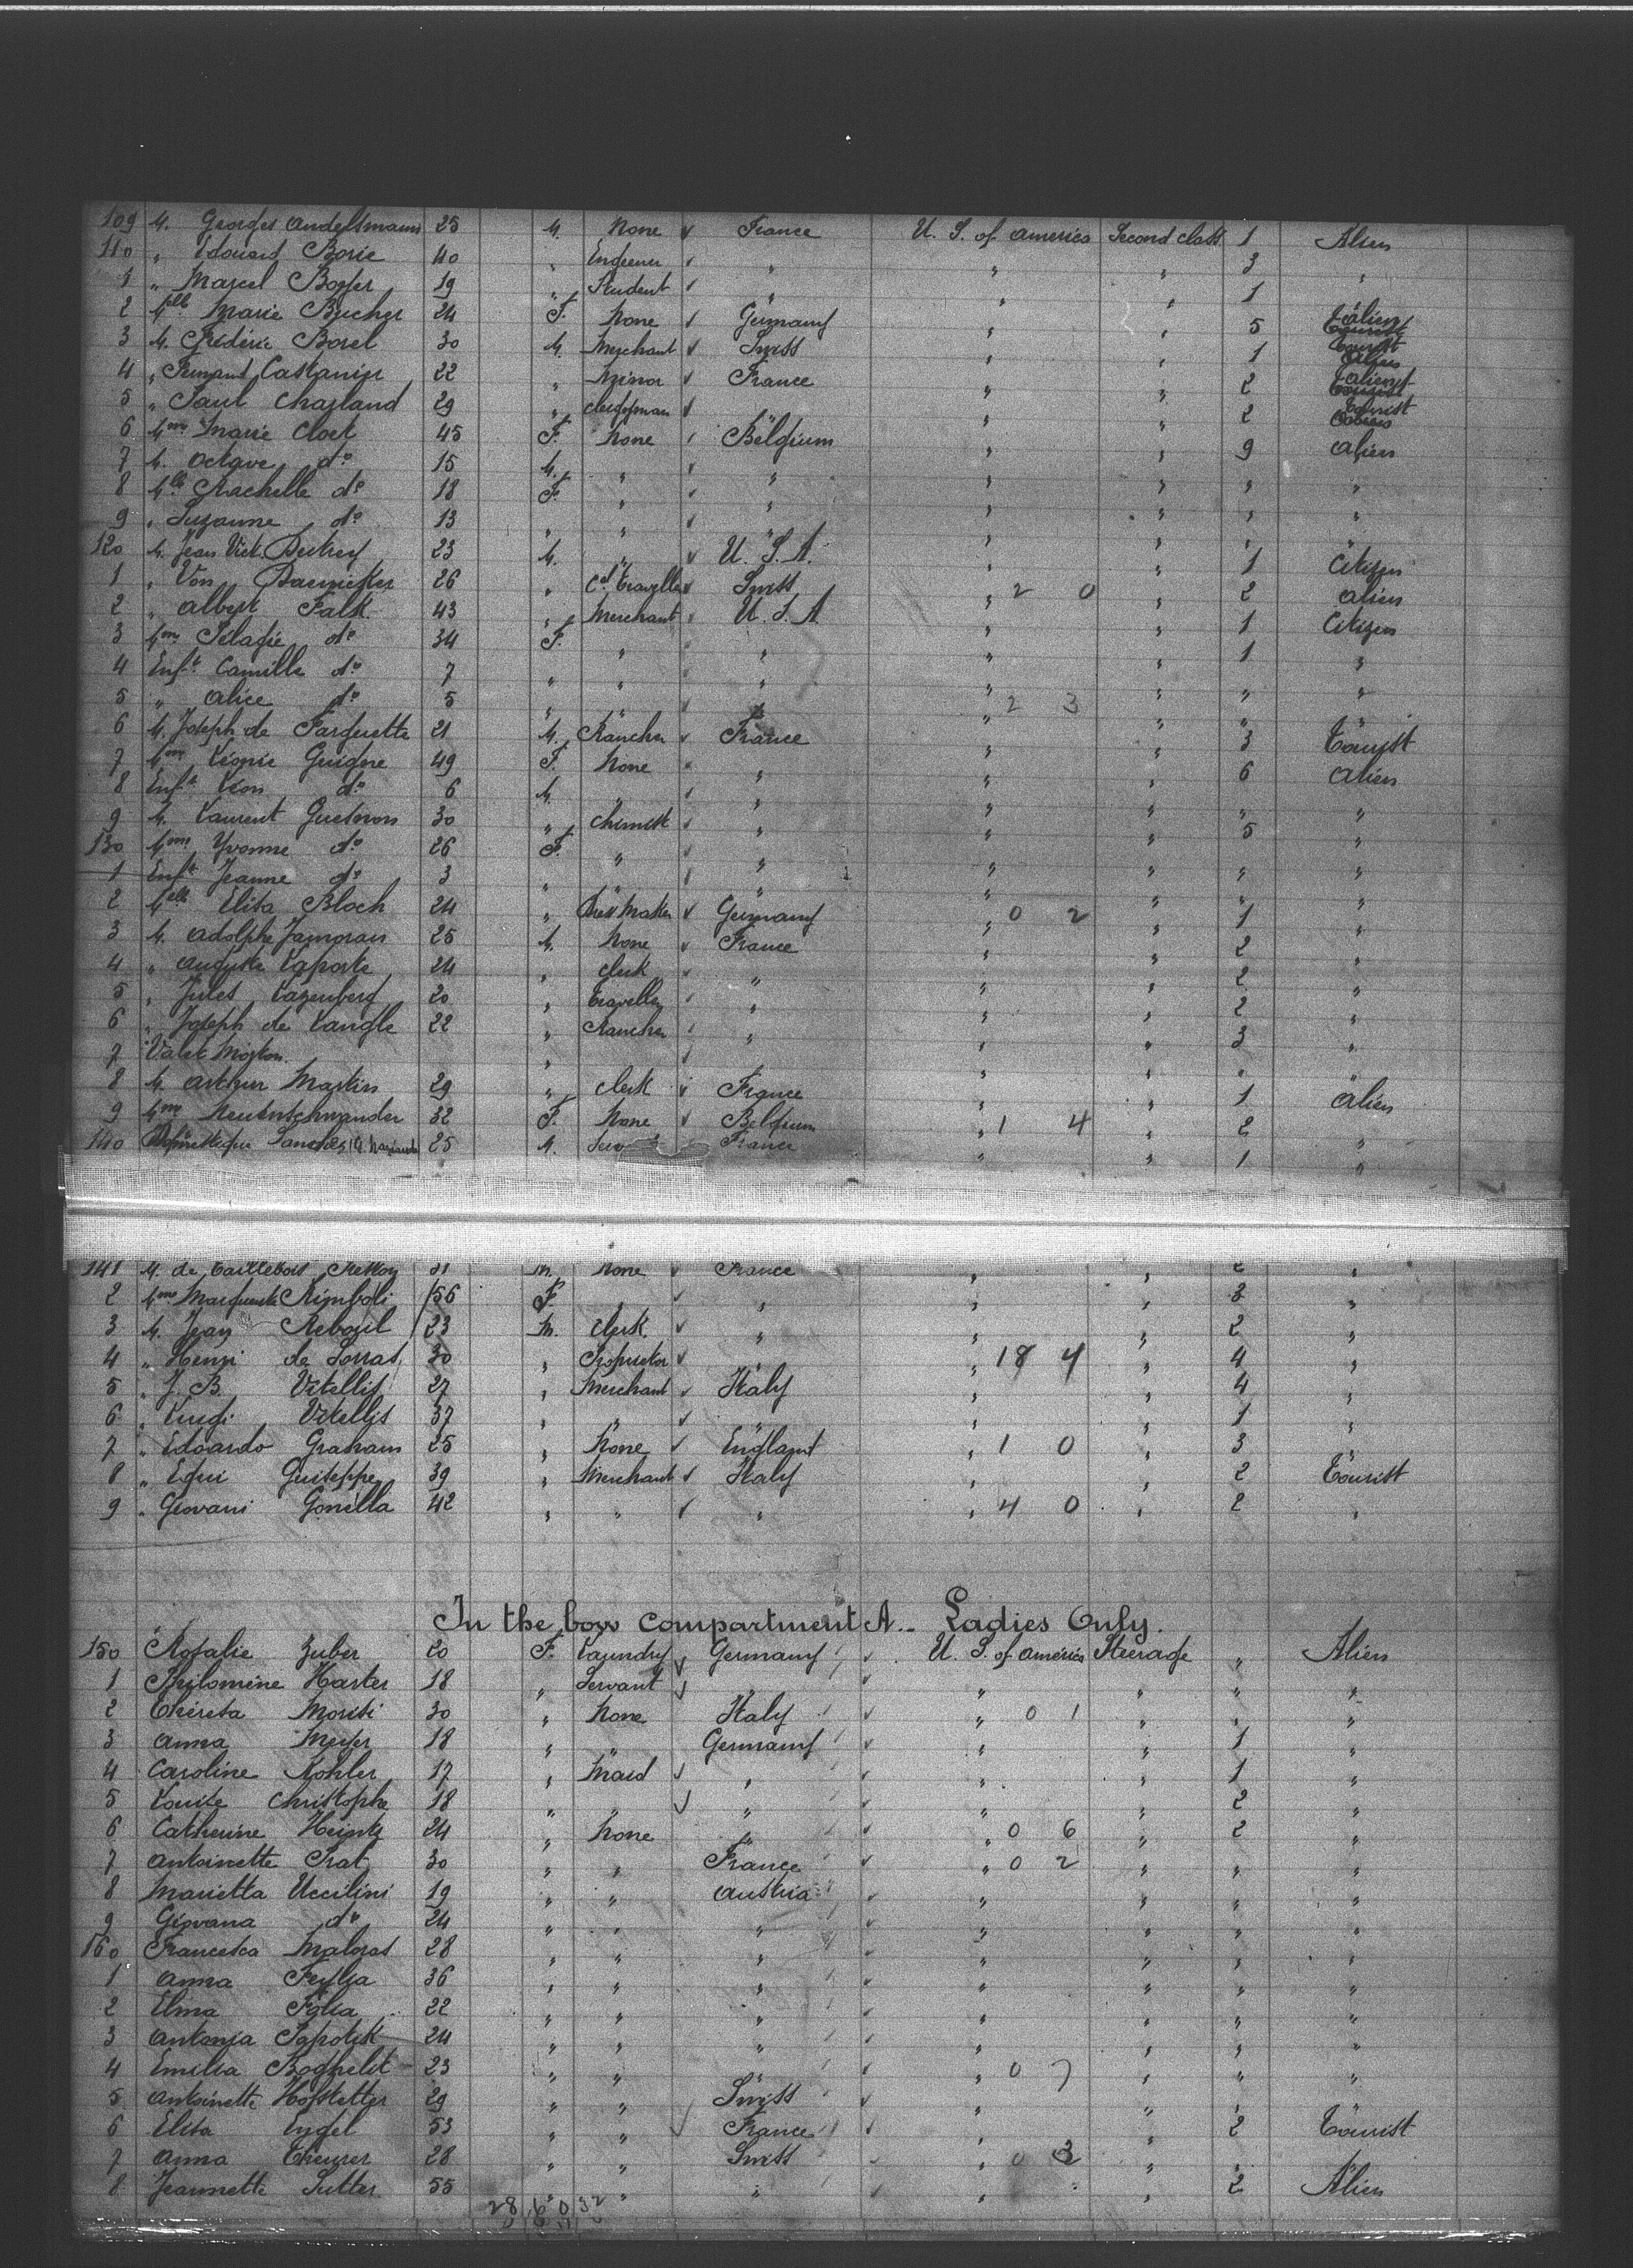 109 M. Georges Andelsmann 25 M. None France U. S. of America Second class 1 Alien
110 " Edouard Borie 40 " Engeener " " " 3 "
1 " Marcel Boyer 19 " Student " " " 1 "
2 Melle Marie Bucher 24 F. None Germany " " 5 Alien
3 M. Frédéric Borel 30 M. Merchant Swiss " " 1
4 " Fernand Castanier 22 " Minor France " " 2
5 " Paul Chapland 29 " Clergyman " " " 2
6 Mme Marie Cloet 45 F. None Belgium " " 9 Alien
7 M. Octave do 15 M. " " " " " "
8 Mlle Rachelle do 18 F. " " " " " "
9 " Suzanne do 13 " " " " " " "
120 M. Jean Vict. 23 M. " U. S. A. " " 1 Citizen
1 " Von 26 " Cal traveller Swiss " 2 0 " 2 Alien
2 " Albert Falk 43 " Merchant U. S. A. " " 1 Citizen
3 Mme Pélagie do 34 F. " " " " 1 "
4 Enft Camille do 7 " " " " " " "
5 " Alice do 5 " " " " 2 3 " " "
6 M. Joseph de Farguette 21 M. Rancher France " " 3 Tourist
7 Mme Léonie Guigne 49 F. None " " " 6 Alien
8 Enft Léon do 6 M. " " " " " "
9 M. Laurent Guesnon 30 " Chimist " " " 5 "
130 Mme Yvonne do 26 F. " " " " " "
1 Enft Jeanne do 3 " " " " " " "
2 Melle Elisa Bloch 24 " Dress Maker Germany " 0 2 " 1 "
3 M. Adolphe Jamoran 25 M. None France " " 2 "
4 " Auguste Laporte 24 " Clerk " " " 2 "
5 " Jules Lazenberg 20 " Traveller " " " 2 "
6 " Joseph de Langle 22 " Rancher " " " 3 "
7 Valet Morton " " " "
8 M. Arthur Martin 29 " Clerk France " " 1 Alien
9 Mme Neuenschwander 32 F. None Belgium " 1 4 " 2 "
140 Sanchez 25 M. France " " 1 "
141 M. de Taillebois M. None France " " 2 "
2 Mme Marguerite Rimboli 56 F. " " " " 3 "
3 M. Jean Reboul 23 M. Clerk " " " 2 "
4 " Henri de Sorras 30 " Proprietor " " 18 4 " 4 "
5 " J. B. Vitellis 27 " Merchant Italy " " 4 "
6 " Luigi Vitellis 37 " " " " " 1 "
7 " Edoardo Graham 25 " None England " 1 0 " 3 "
8 " Equi Guiseppe 39 " Merchant Italy " " 2 Tourist
9 " Giovani Gonella 42 " " " " 4 0 " 2 "
In the bow compartment A.. Ladies Only.
150 Rosalie Zuber 20 F. Laundry Germany U. S. of America Steerage " Alien
1 Philomène Harter 18 " Servant " " " " "
2 Thérésa Morisi 30 " None Italy " 0 1 " " "
3 Anna Meyer 18 " " Germany " " 1 "
4 Caroline Kohler 17 " Maid " " " 1 "
5 Louise Christophe 18 " " " " " 2 "
6 Catherine Heintz 24 " None " " 0 6 " 2 "
7 Antoinette Prat 30 " " France " 0 2 " " "
8 Marietta Uccilini 19 " " Austria " " " "
9 Giovana do 24 " " " " " " "
160 Francesca Maloras 28 " " " " " " "
1 Anna Feylia 36 " " " " " " "
2 Elina Folia 22 " " " " " " "
3 Antonia Sapotik 24 " " " " " " "
4 Emilia Boghelit 23 " " " " 0 7 " " "
5 Antoinette Hofstetter 29 " " Swiss " " " "
6 Elisa Engel 53 " " France " " 2 Tourist
7 Anna Theurer 28 " " Swiss " 0 3 " " "
8 Jeannette Sutter 55 " " " " " 2 Alien
28 6 0 32